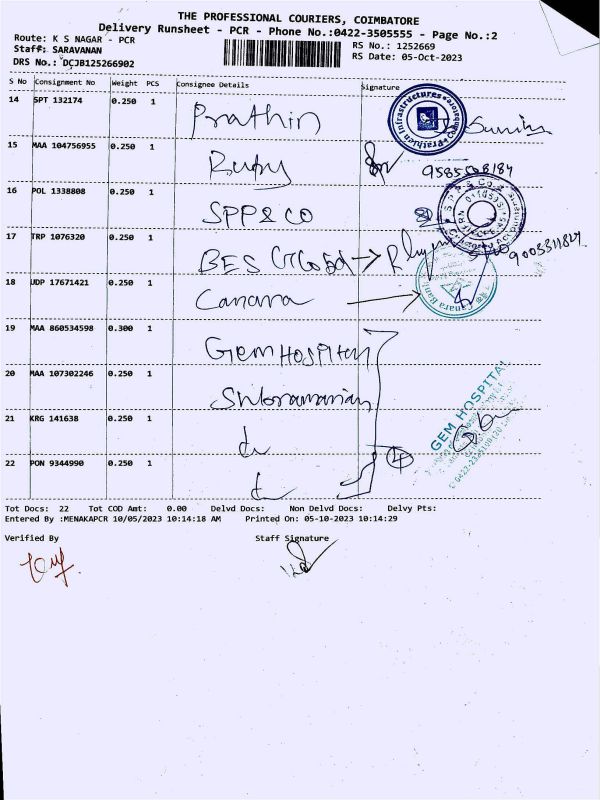 THE PROFESSIONAL COURIERS, COIMBATORE
Delivery Runsheet - PCR - Phone No.:0422-3505555 - Page No.:2
Route: K S NAGAR - PCR
RS No.: 1252669
Staff: SARAVANAN
RS Date: 05-Oct-2023
DRS No.: DCJB125266902
S No Consignment No Weight PCS Consignee Details Signature
14 SPT 132174 0.250 1 Prathin
15 MAA 104756955 0.250 1 Ruby
16 POL 1338808 0.250 1 SPP & CO
17 TRP 1076320 0.250 1 BES
18 UDP 17671421 0.250 1 Canara
19 MAA 860534598 0.300 1 Gem Hospital
20 MAA 107302246 0.250 1 Subramanian
21 KRG 141638 0.250 1
22 PON 9344990 0.250 1
4
GEM HOSPITAL
Tot Docs: 22 Tot COD Amt: 0.00 Delvd Docs: Non Delvd Docs: Delvy Pts:
Entered By :MENAKAPCR 10/05/2023 10:14:18 AM Printed On: 05-10-2023 10:14:29
Verified By Staff Signature